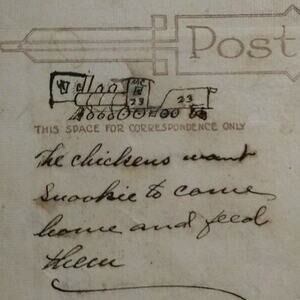 Post
23
23
THIS SPACE FOR CORRESPONDENCE ONLY
The chickens want
Snookie to come
home and feed
them